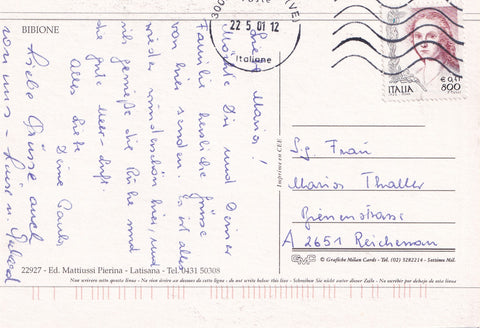 BIBIONE
Liebe Marion!
Möchte Dir und Deiner
Familie herzliche Grüsse
von hier senden. Es ist alles
wieder wunderschön hier, und
ich genieße die Ruhe und
die gute Meer-Luft.
Alles Liebe
Deine
Liebe Grüsse auch
von uns -
22 5. 01 12
Italiane
ITALIA
€ 0,41
800
Imprimé en CEE
Sig. Frau
Marion Thaller
Bienenstrasse
A 2651 Reichenau
22927 - Ed. Mattiussi Pierina - Latisana - Tel. 0431 50308
GMC © Grafiche Milan Cards - Tel. (02) 3282214 - Settimo Mil.
Non scrivere sotto questa linea - Ne rien écrire au dessous de cette ligne - do not write below this line - Schreiben Sie nicht unter dieser Zeile - No escribir por debajo de esta línea